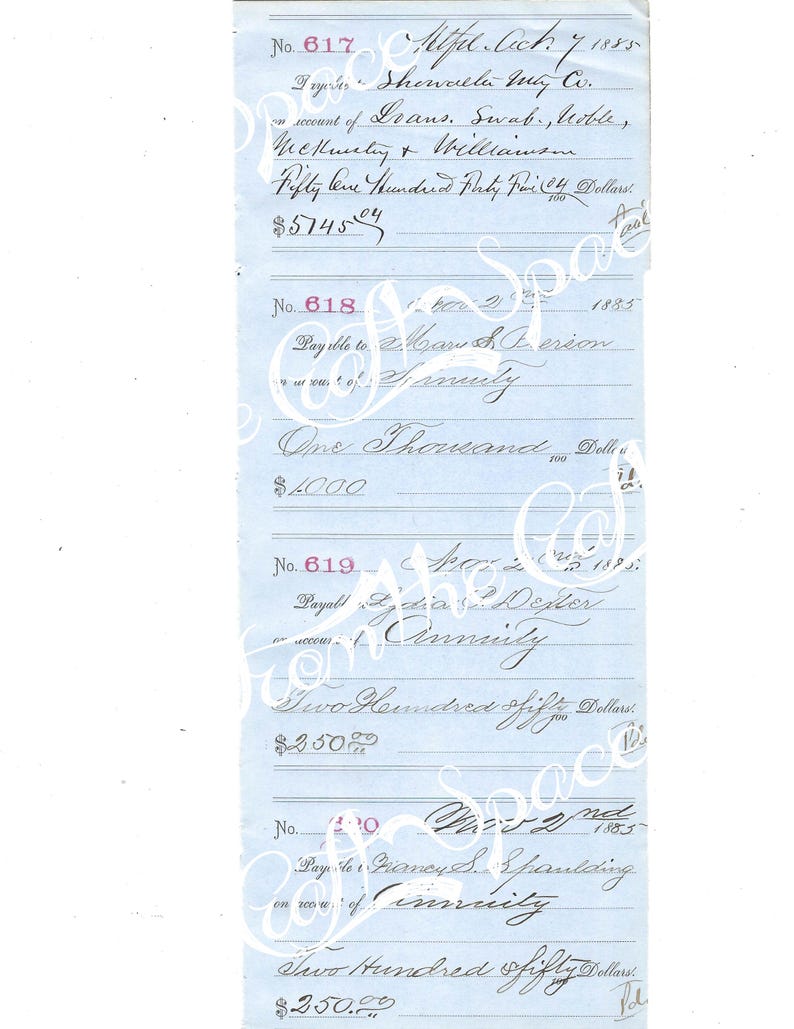 No. 617 Htfd. Oct. 7 1885
Payable to Showalter Mtg Co.
on account of Loans. Swab, Noble,
McKinstry & Williamson
Fifty One Hundred Forty Five 04/100 Dollars.
$5145 04
No. 618 Nov 2nd 1885
Payable to Mary S. Pierson
on account of Annuity
One Thousand 100 Dollars
$1000
No. 619 Nov 2nd 1885.
Payable to Lydia P. Dexter
on account of Annuity
Two Hundred & fifty 100 Dollars.
$250.00
No. 620 Nov 2nd 1885
Payable to Nancy S. Spaulding
on account of Annuity
Two Hundred & fifty 100 Dollars.
$250.00
From the Craft Space